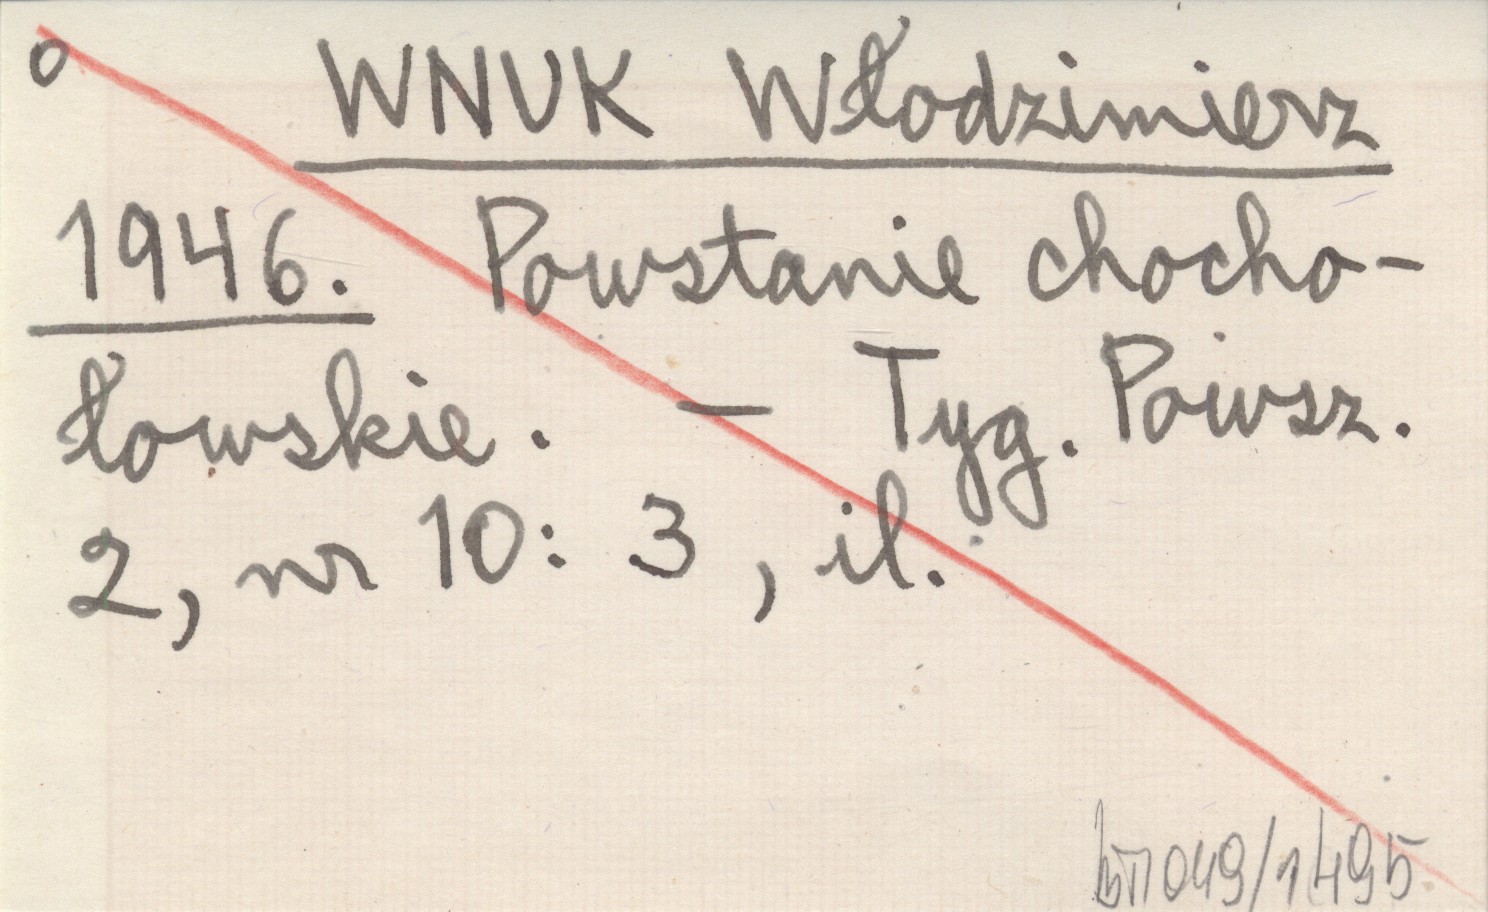 o WNUK Włodzimierz
1946. Powstanie chocho-
łowskie. — Tyg. Powsz.
2, nr 10: 3, il.
049/1495